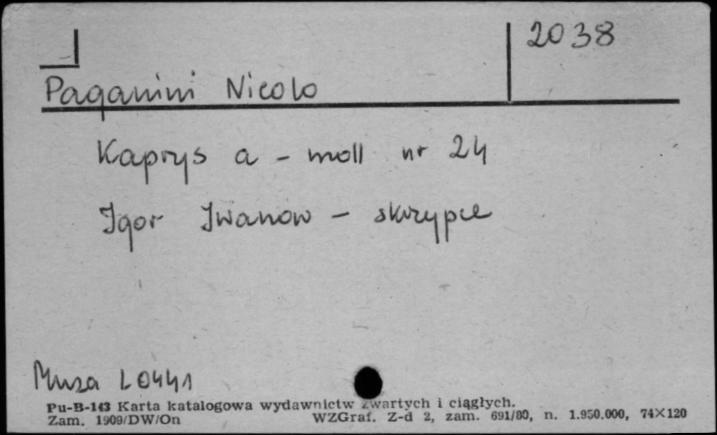 2038
Paganini Nicolo
Kaprys a-moll nr 24
Igor Iwanow - skrzypce
Muza L0441
Pu-B-143 Karta katalogowa wydawnictw zwartych i ciągłych.
Zam. 1909/DW/On WZGraf. Z-d 2, zam. 691/80, n. 1.950.000, 74×120